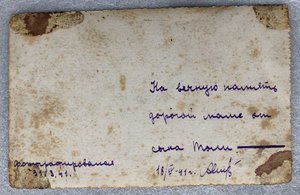 На вечную память
дорогой маме от
сына Толи
18/V-41г.
Фотографировался
31/3.41.